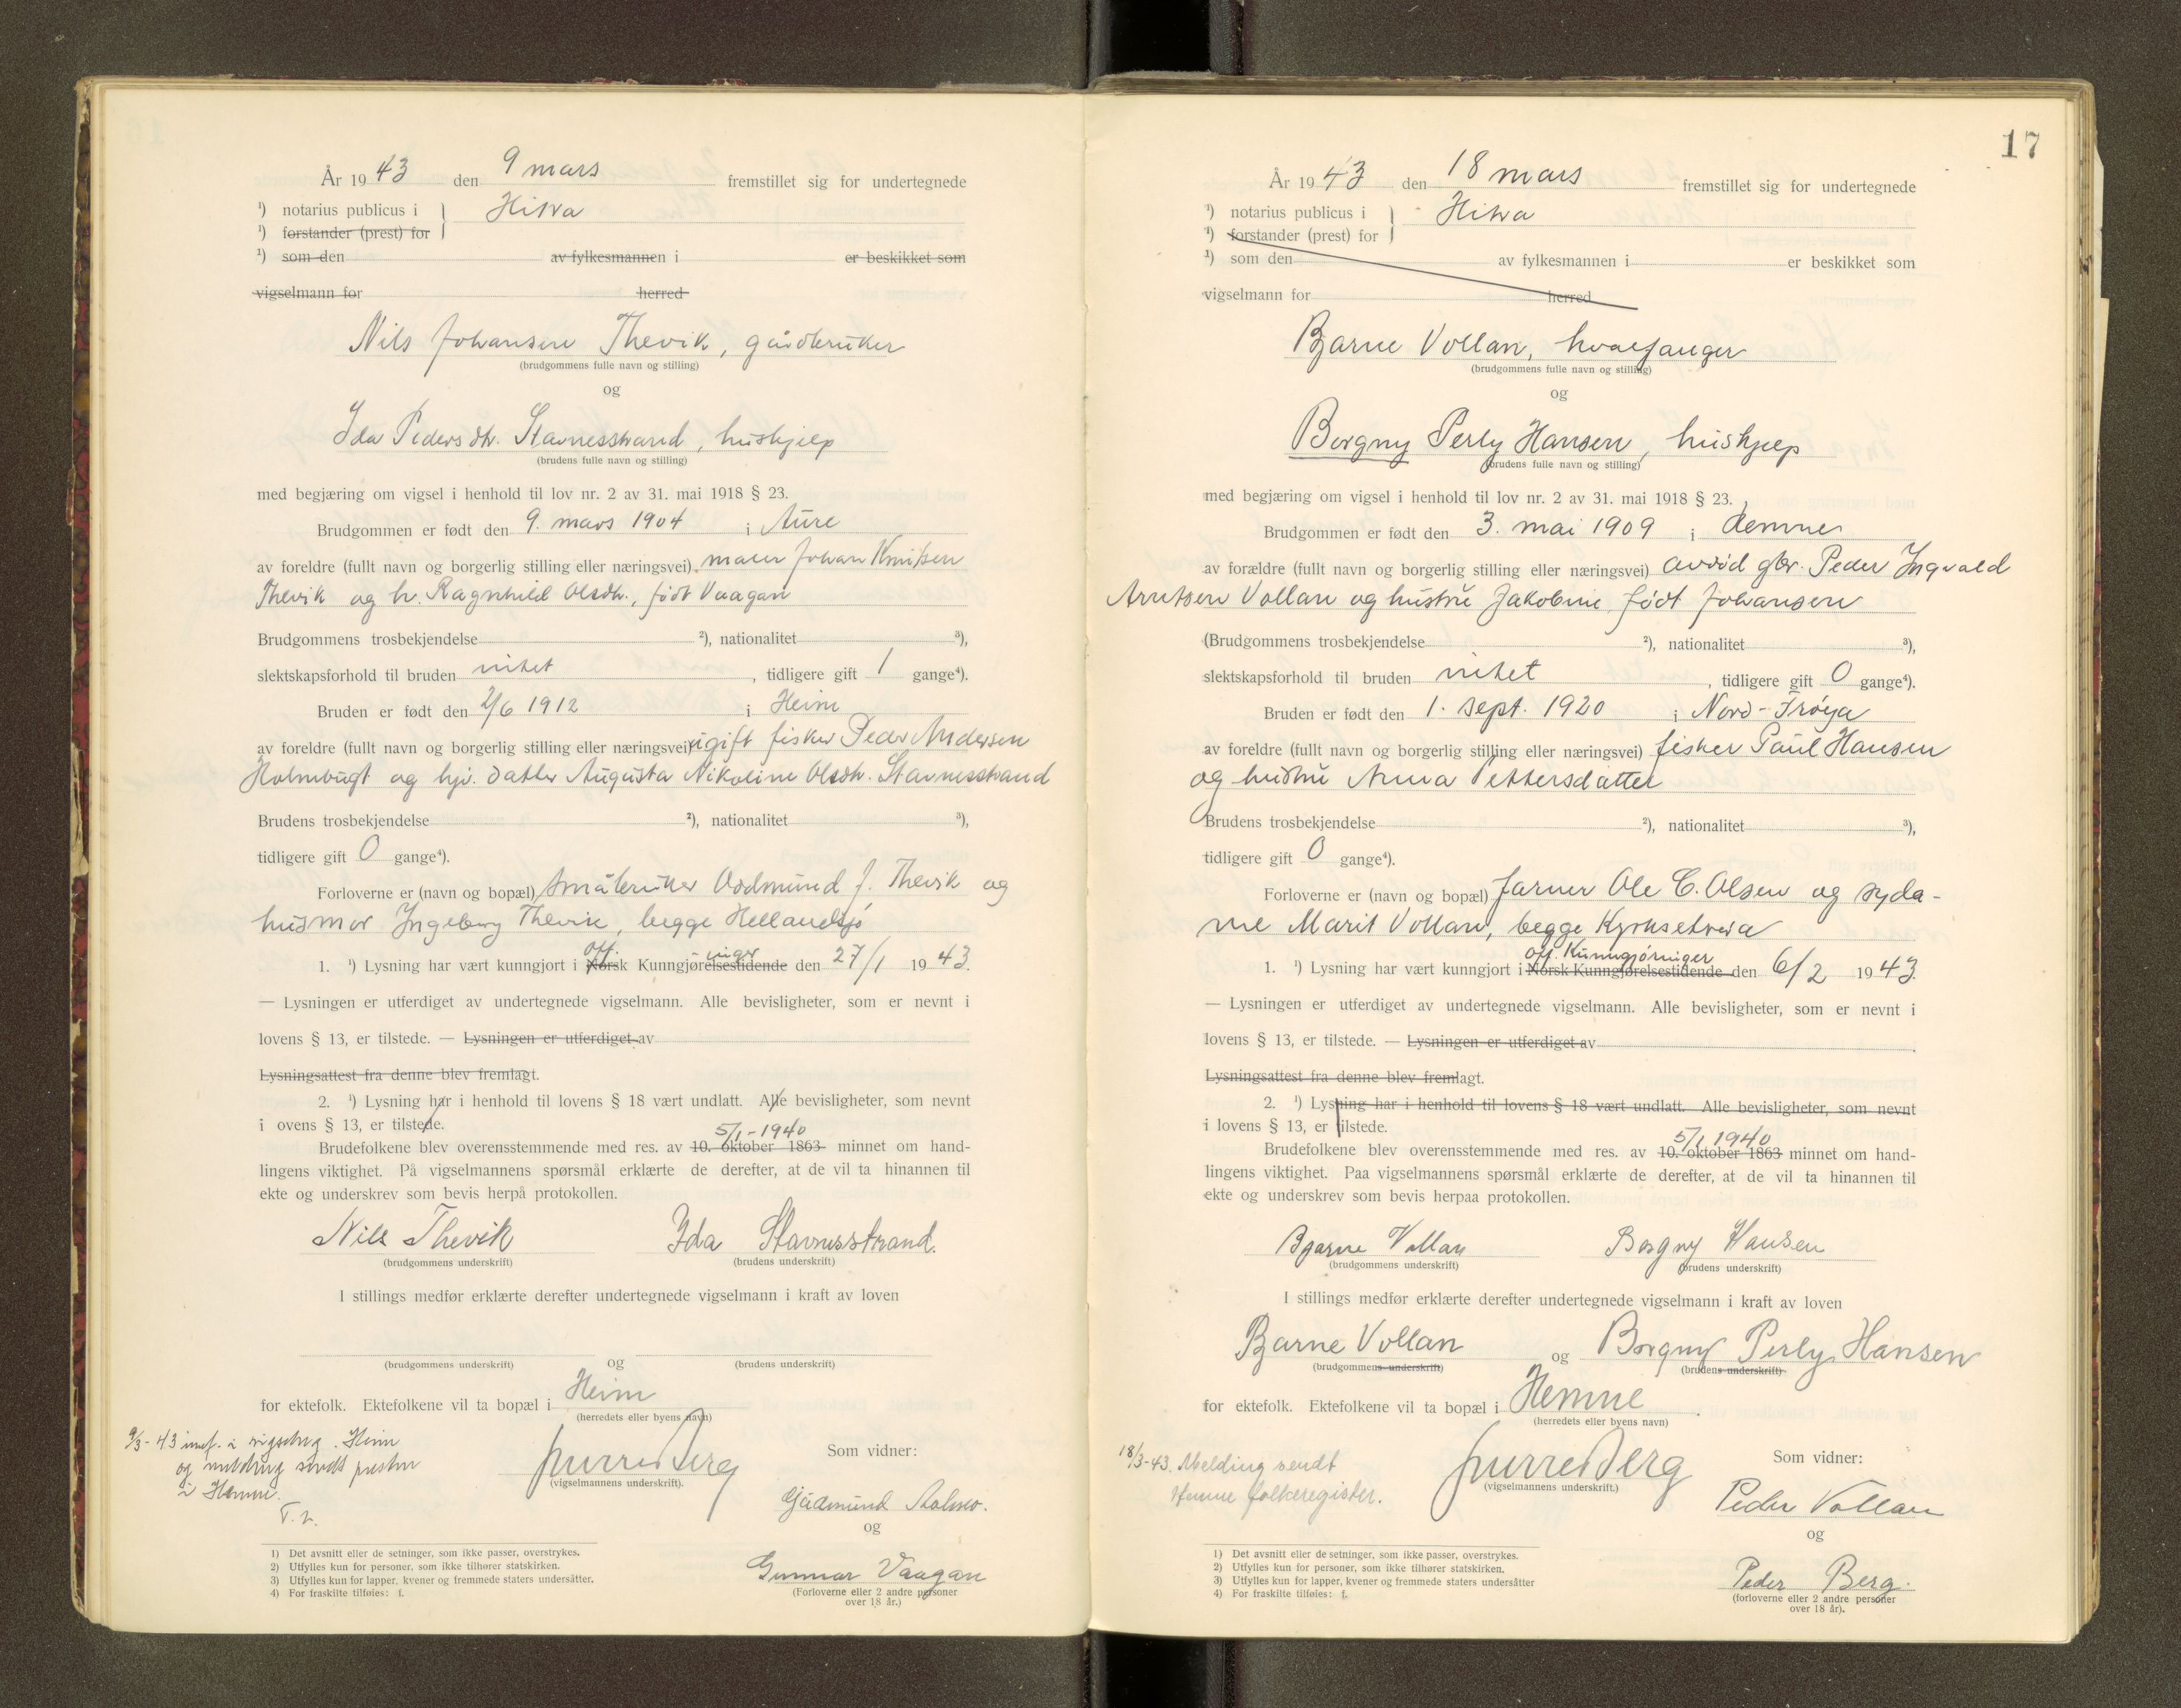 År 19 43 den 9 mars fremstillet sig for undertegnede
¹) notarius publicus i Hitra
¹) forstander (prest) for
¹) som den av fylkesmannen i er beskikket som
vigselmann for herred
Nils Johansen Thevik, gårdbruker
(brudgommens fulle navn og stilling)
og
Ida Pedersdtr. Stavnesstrand, hushjelp
(brudens fulle navn og stilling)
med begjæring om vigsel i henhold til lov nr. 2 av 31. mai 1918 § 23.
Brudgommen er født den 9. mars 1904 i Aure
av foreldre (fullt navn og borgerlig stilling eller næringsvei) maler Johan Knutsen
Thevik og h. Ragnhild Olsdtr., født Vaagan
Brudgommens trosbekjendelse ²), nationalitet ³),
slektskapsforhold til bruden intet, tidligere gift 1 gange⁴).
Bruden er født den 2/6 1912 i Heim
av foreldre (fullt navn og borgerlig stilling eller næringsvei) ugift fisker Peder Andersen
Holmbugt og hjv. datter Augusta Nikoline Olsdtr. Stavnesstrand
Brudens trosbekjendelse ²), nationalitet ³),
tidligere gift 0 gange⁴).
Forloverne er (navn og bopæl) småbruker Oddmund J. Thevik og
husmor Ingeborg Thevik, begge Hellandsjø
off. inger
1. ¹) Lysning har vært kunngjort i Norsk Kunngjørelsestidende den 27/1 19 43.
— Lysningen er utferdiget av undertegnede vigselmann. Alle bevisligheter, som er nevnt i
lovens § 13, er tilstede. — Lysningen er utferdiget av
Lysningsattest fra denne blev fremlagt.
2. ¹) Lysning har i henhold til lovens § 18 vært undlatt. Alle bevisligheter, som nevnt
i ovens § 13, er tilstede.
5/1-1940
Brudefolkene blev overensstemmende med res. av 10. oktober 1863 minnet om hand-
lingens viktighet. På vigselmannens spørsmål erklærte de derefter, at de vil ta hinannen til
ekte og underskrev som bevis herpå protokollen.
Nils Thevik Ida Stavnesstrand.
(brudgommens underskrift) (brudens underskrift)
I stillings medfør erklærte derefter undertegnede vigselmann i kraft av loven
og
(brudgommens underskrift) (brudens underskrift)
for ektefolk. Ektefolkene vil ta bopæl i Heim
(herredets eller byens navn)
9/3-43 innf. i vigselreg. Heim
og melding sendt presten
i Hemne.
Som vidner:
(vigselmannens underskrift).
Gudmund
og
Gunnar Vaagan
(Forloverne eller 2 andre personer
over 18 år.)
1) Det avsnitt eller de setninger, som ikke passer, overstrykes.
2) Utfylles kun for personer, som ikke tilhører statskirken.
3) Utfylles kun for lapper, kvener og fremmede staters undersåtter.
4) For fraskilte tilføies: f.
17
År 19 43 den 18 mars fremstillet sig for undertegnede
¹) notarius publicus i Hitra
¹) forstander (prest) for
¹) som den av fylkesmannen i er beskikket som
vigselmann for herred
Bjarne Vollan, hvalfanger
(brudgommens fulle navn og stilling)
og
Borgny Perly Hansen, hushjelp
(brudens fulle navn og stilling)
med begjæring om vigsel i henhold til lov nr. 2 av 31. mai 1918 § 23.
Brudgommen er født den 3. mai 1909 i Hemne
av forældre (fullt navn og borgerlig stilling eller næringsvei) avdød gbr. Peder Ingvald
Arntsen Vollan og hustru Jakobine født Johansen
(Brudgommens trosbekjendelse ²), nationalitet ³),
slektskapsforhold til bruden intet, tidligere gift 0 gange⁴).
Bruden er født den 1. sept. 1920 i Nord-Frøya
av foreldre (fullt navn og borgerlig stilling eller næringsvei) fisker Paul Hansen
og hustru Anna Pettersdatter
Brudens trosbekjendelse ²), nationalitet ³),
tidligere gift 0 gange⁴).
Forloverne er (navn og bopæl) farver Ole C. Olsen og syda-
me Marit Vollan, begge Kyrksetøra
off. Kunngjøringer
1. ¹) Lysning har vært kunngjort i Norsk Kunngjørelsestidende den 6/2 19 43.
— Lysningen er utferdiget av undertegnede vigselmann. Alle bevisligheter, som er nevnt i
lovens § 13, er tilstede. — Lysningen er utferdiget av
Lysningsattest fra denne blev fremlagt.
2. ¹) Lysning har i henhold til lovens § 18 vært undlatt. Alle bevisligheter, som nevnt
i lovens § 13, er tilstede.
5/1 1940
Brudefolkene blev overensstemmende med res. av 10. oktober 1863 minnet om hand-
lingens viktighet. Paa vigselmannens spørsmål erklærte de derefter, at de vil ta hinannen til
ekte og underskrev som bevis herpaa protokollen.
Bjarne Vollan Borgny Hansen
(brudgommens underskrift) (brudens underskrift)
I stillings medfør erklærte derefter undertegnede vigselmann i kraft av loven
Bjarne Vollan og Borgny Perly Hansen
(brudgommens underskrift) (brudens underskrift)
for ektefolk. Ektefolkene vil ta bopæl i Hemne
(herredets eller byens navn)
18/3-43. Melding sendt
Hemne folkeregister.
Som vidner:
(vigselmannens underskrift.)
Peder Vollan
og
Peder Berg.
(forloverne eller 2 andre personer
over 18 år).
1) Det avsnitt eller de setninger, som ikke passer, overstrykes.
2) Utfylles kun for personer, som ikke tilhører statskirken.
3) Utfylles kun for lapper, kvener og fremmede staters undersåtter
4) For fraskilte tilføies: f.